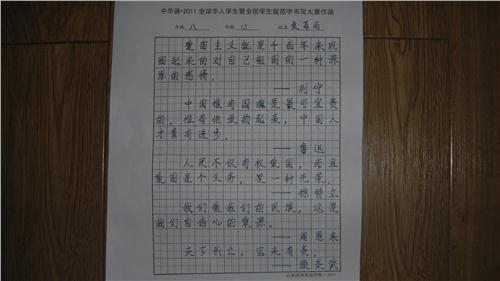 中华诵•2011全球华人学生暨全国学生规范字书写大赛作品
年级 八 年龄 13 姓名
爱国主义就是千百年来巩
固起来的对自己祖国的一种深
厚的感情。
——列宁
中国惟有国魂是最可宝贵
的,惟有他发扬起来,中国人
才真有进步。
——鲁迅
人民不仅有权爱国,而且
爱国是个义务,是一种光荣。
——徐特立
我们爱我们的民族,这是
我们自信心的泉源。
——周恩来
天下兴亡,匹夫有责。
——顾炎武